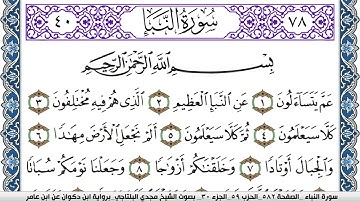 ٧٨ سُورَةُ النَّبَإِ ٤٠
بِسْمِ اللَّهِ الرَّحْمَٰنِ الرَّحِيمِ
عَمَّ يَتَسَآءَلُونَ ١ عَنِ النَّبَإِ الْعَظِيمِ ٢ الَّذِي هُمْ فِيهِ مُخْتَلِفُونَ ٣
كَلَّا سَيَعْلَمُونَ ٤ ثُمَّ كَلَّا سَيَعْلَمُونَ ٥ أَلَمْ نَجْعَلِ الْأَرْضَ مِهَٰدًا ٦
وَالْجِبَالَ أَوْتَادًا ٧ وَخَلَقْنَٰكُمْ أَزْوَٰجًا ٨ وَجَعَلْنَا نَوْمَكُمْ سُبَاتًا
سورة النباء _ الصفحة ٥٨٢ _ الحزب ٥٩ _ الجزء ٣٠ _ بصوت الشيخ مجدي البلتاجي _ برواية ابن ذكوان عن ابن عامر